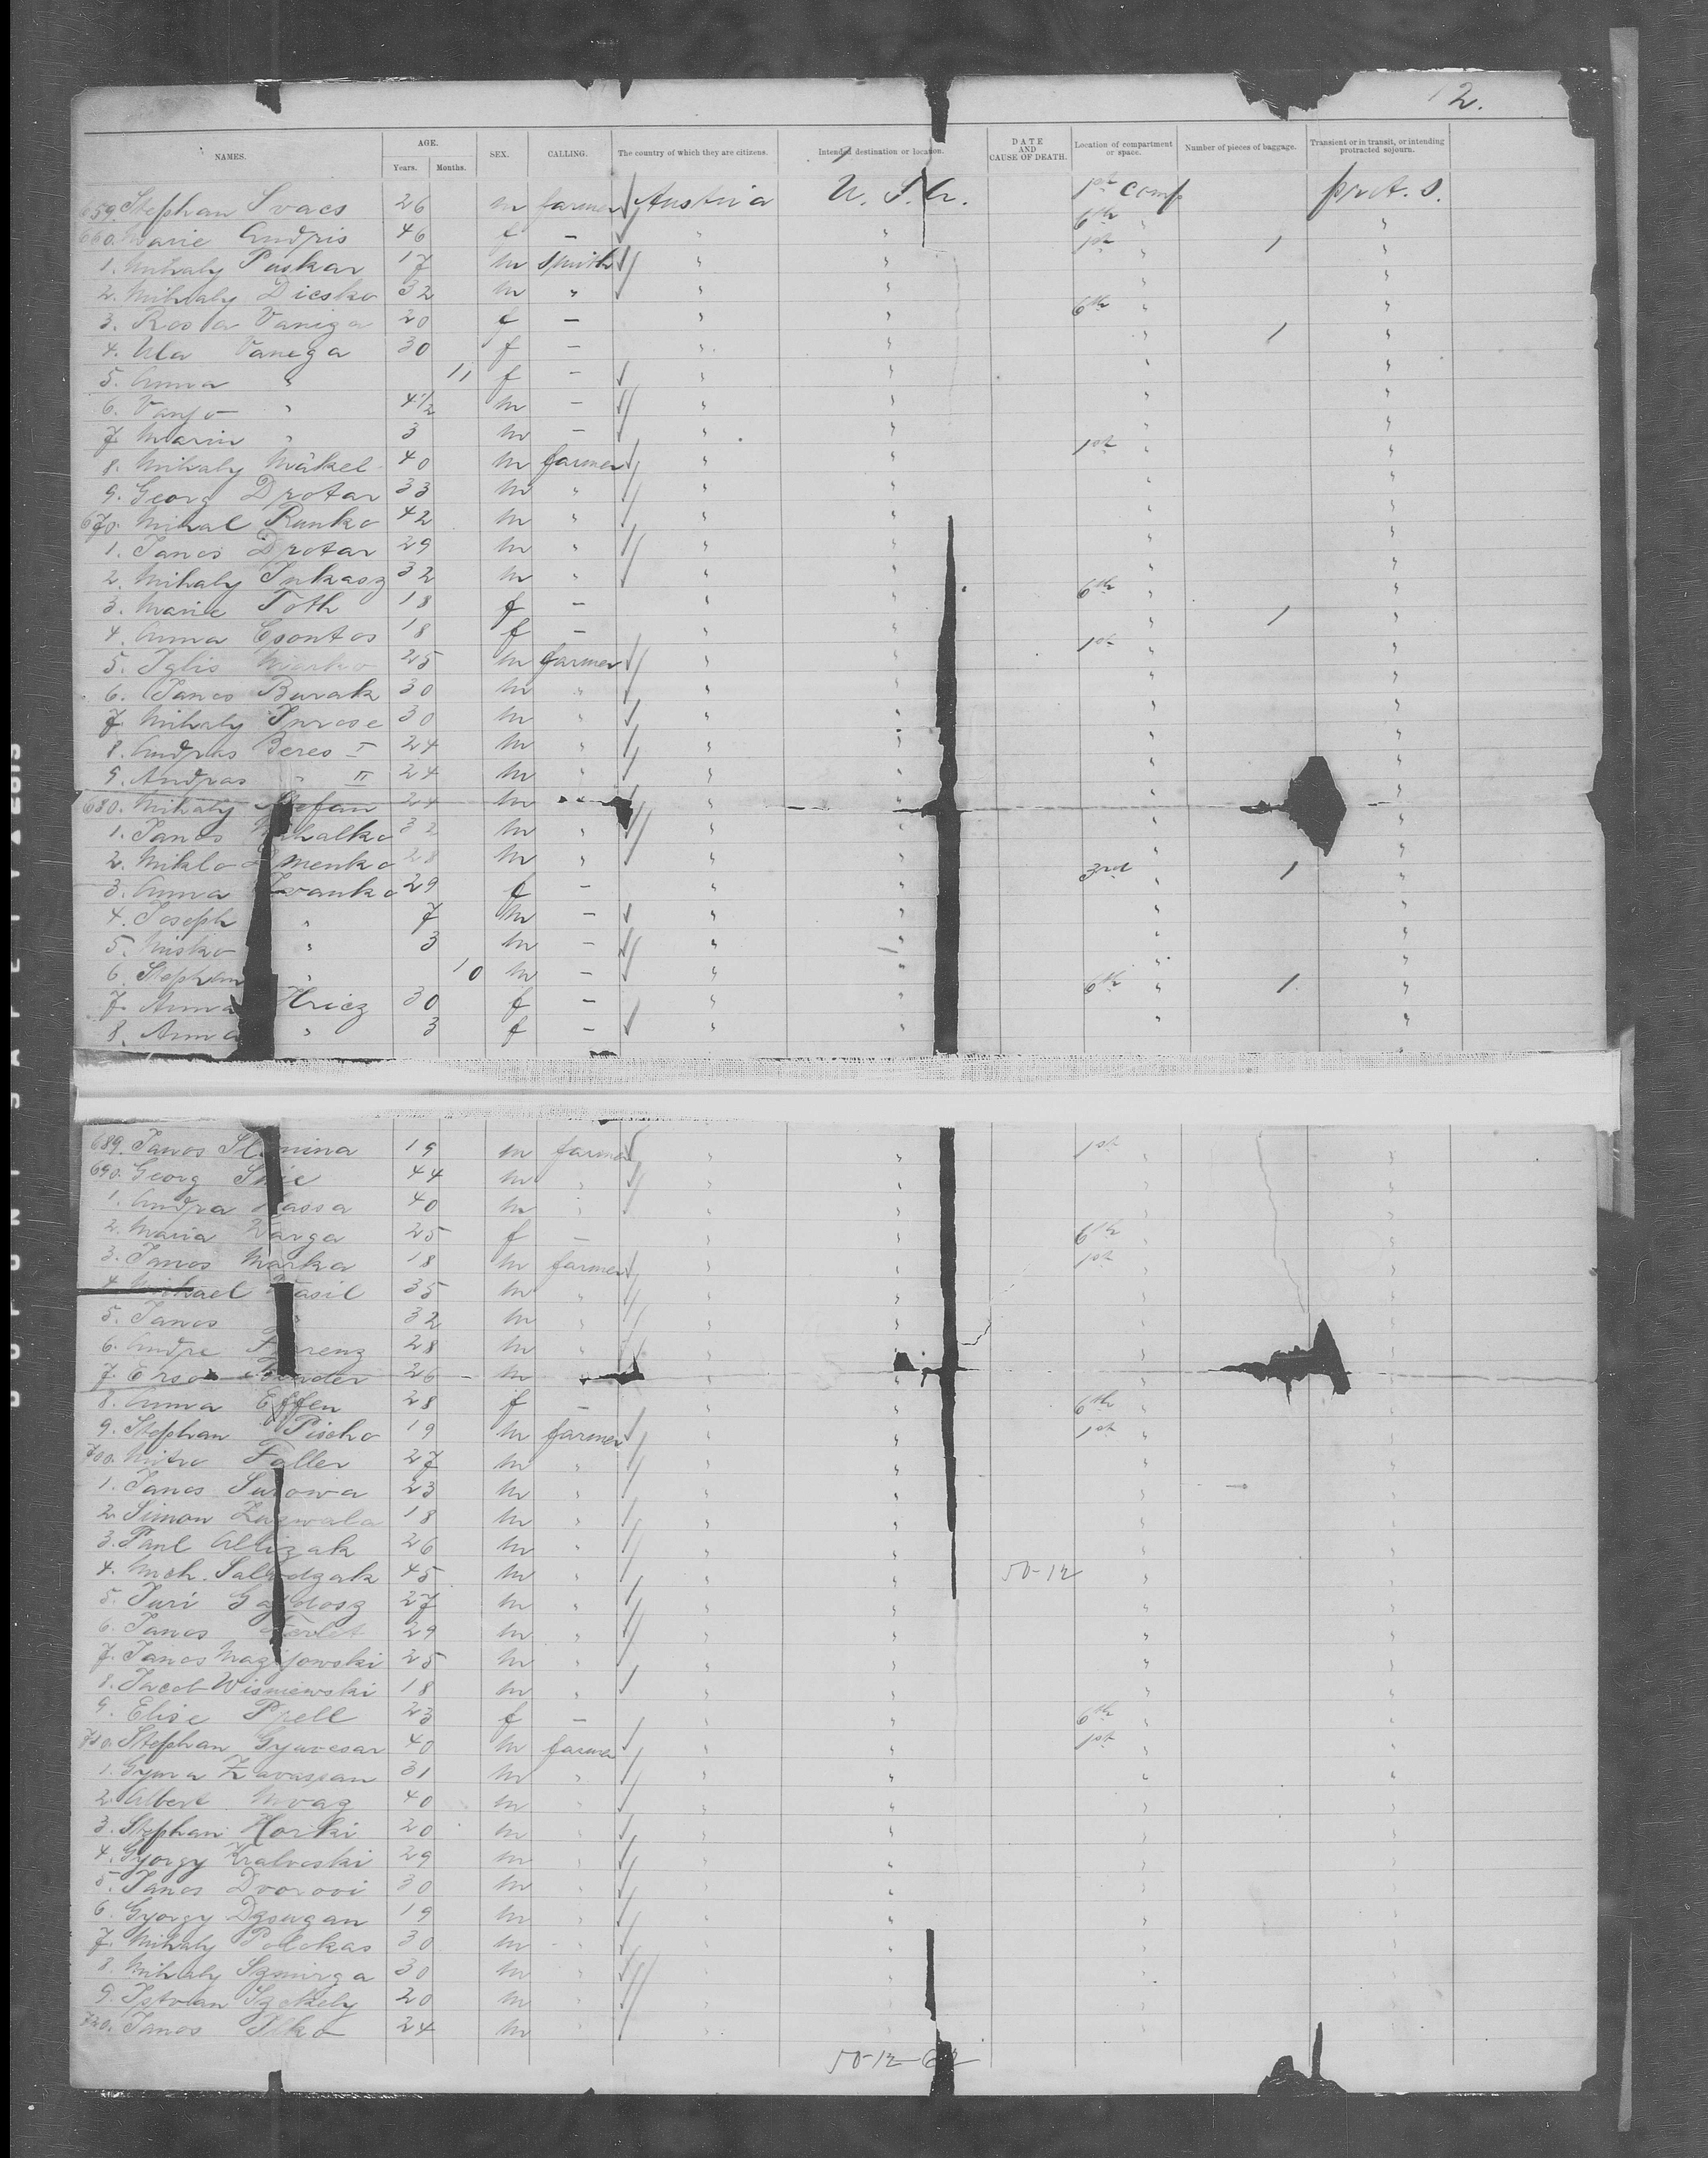 12.
NAMES. AGE. Years. Months. SEX. CALLING. The country of which they are citizens. Intended destination or location. DATE AND CAUSE OF DEATH. Location of compartment or space. Number of pieces of baggage. Transient or in transit, or intending protracted sojourn.
659. Stephan Ivacs 26 m farmer Austria U.S.A. 1st comp prot. s.
660. Marie Andris 46 f — " " 6th " "
1. Mihaly Puskar 17 m Smith " " 1st " 1 "
2. Mihaly Dicsko 32 m " " " " "
3. Rosa Vaniga 20 f — " " 6th " "
4. Ula Vanega 30 f — " " " 1 "
5. Anna " 11 f — " " " "
6. Vanjo " 4 1/2 m — " " " "
7. Marin " 3 m — " " " "
8. Mihaly Mäkel 40 m farmer " " 1st " "
9. Georg Drotar 33 m " " " " "
670. Mihal Runko 42 m " " " " "
1. Janos Drotar 29 m " " " " "
2. Mihaly Inkasz 32 m " " " " "
3. Marie Toth 18 f — " " 6th " "
4. Anna Csontos 18 f — " " " 1 "
5. Iglis 25 m farmer " " 1st " "
6. Janos Burak 30 m " " " " "
7. Mihaly 30 m " " " " "
8. Andras Beres I 24 m " " " " "
9. Andras " II 24 m " " " " "
680. Mihaly Stefan 24 m " " " "
1. Janos Mihalko 32 m " " " " "
2. Miklo menko 28 m " " " " "
3. Anna Ivanko 29 f — " " 3rd " 1 "
4. Joseph " 7 m — " " " "
5. Misko " 3 m — " " " "
6. Stephan " 10 m — " " " "
7. Anna Hricz 30 f — " " 6th " 1 "
8. Anna " 3 f — " " " "
689. Janos mina 19 m farmer " " 1st " "
690. Georg 44 m " " " " "
1. Andra assa 40 m " " " " "
2. Maria Varga 25 f — " " 6th " "
3. Janos Marka 18 m farmer " " 1st " "
4. Michael Wasil 35 m " " " " "
5. Janos " 32 m " " " " "
6. Andre Ferenz 28 m " " " " "
7. 26 m " " "
8. Anna Effen 28 f — " " 6th " "
9. Stephan Pischo 19 m farmer " " 1st " "
700. Mitro Faller 27 m " " " " "
1. Janos Surowa 23 m " " " " "
2. Simon Zugwala 18 m " " " " "
3. Paul Allizak 26 m " " " " "
4. Mich. Salodzak 45 m " " " 50-12 " "
5. Juri Gajdosz 27 m " " " " "
6. Janos 29 m " " " " "
7. Janos Mazijowski 25 m " " " " "
8. Jacob Wisniewski 18 m " " " " "
9. Elise Prell 23 f — " " 6th " "
710. Stephan Gyuvesar 40 m farmer " " 1st " "
1. Gyura Zavaspan 31 m " " " " "
2. Albert Mvag 40 m " " " " "
3. Stephan Horki 20 m " " " " "
4. György Kralveski 29 m " " " " "
5. Janos Dvorovi 30 m " " " " "
6. György Dzougan 19 m " " " " "
7. Mihaly Polokas 30 m " " " " "
8. Mihaly Szmirga 30 m " " " " "
9. Istvan Szekely 20 m " " " " "
720. Janos 24 m " " " " "
50-12-62